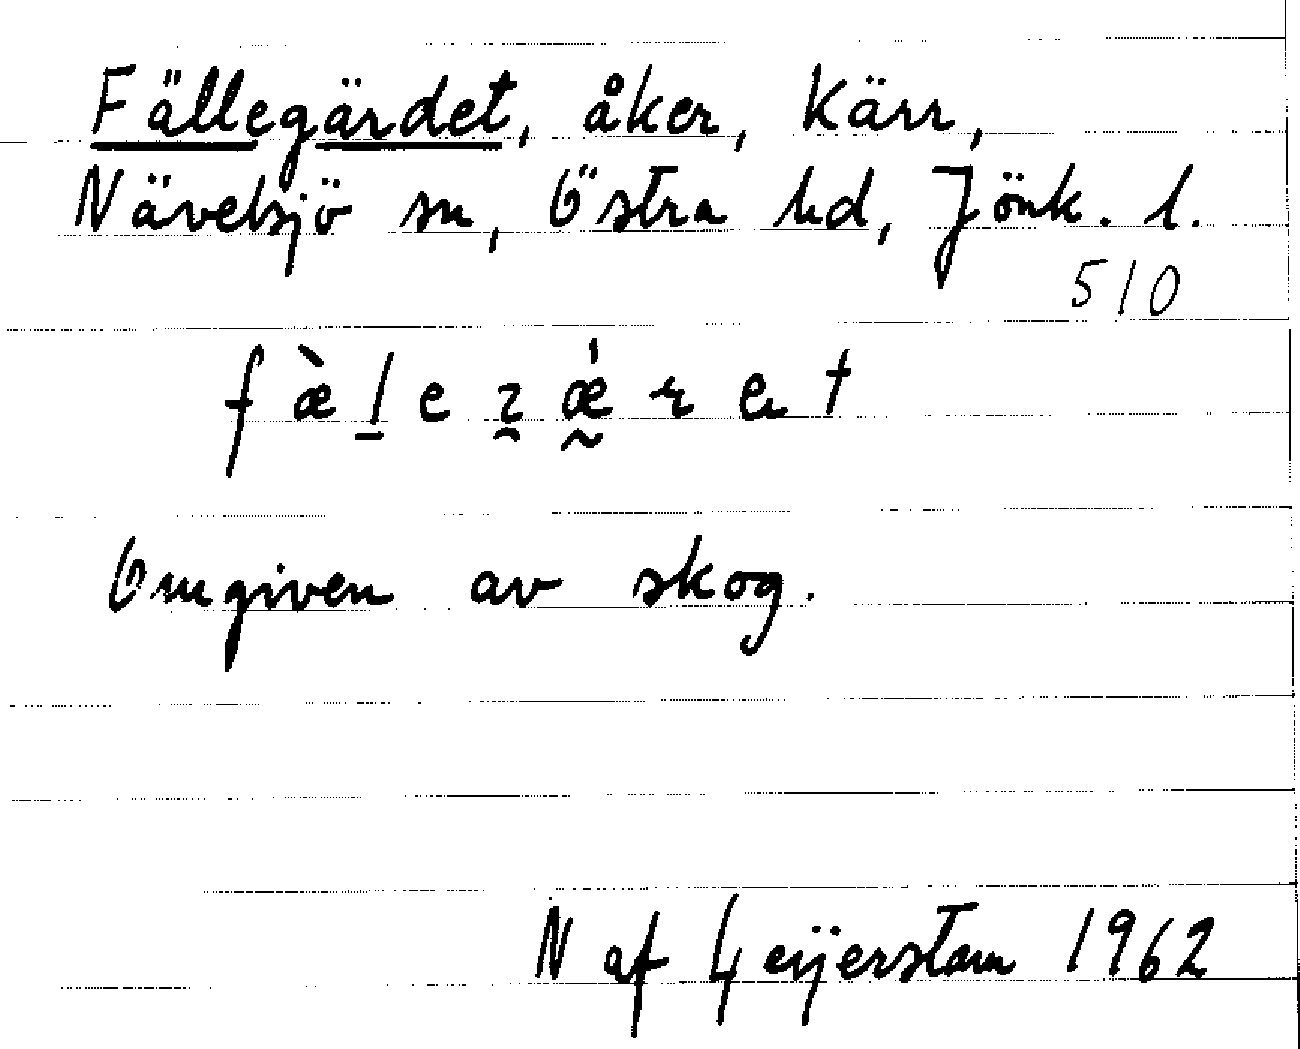 Fällegärdet, åker, Kärr,
Nävelsjö sn, Östra hd, Jönk. l.
510
Omgiven av skog.
N af Geijerstam 1962